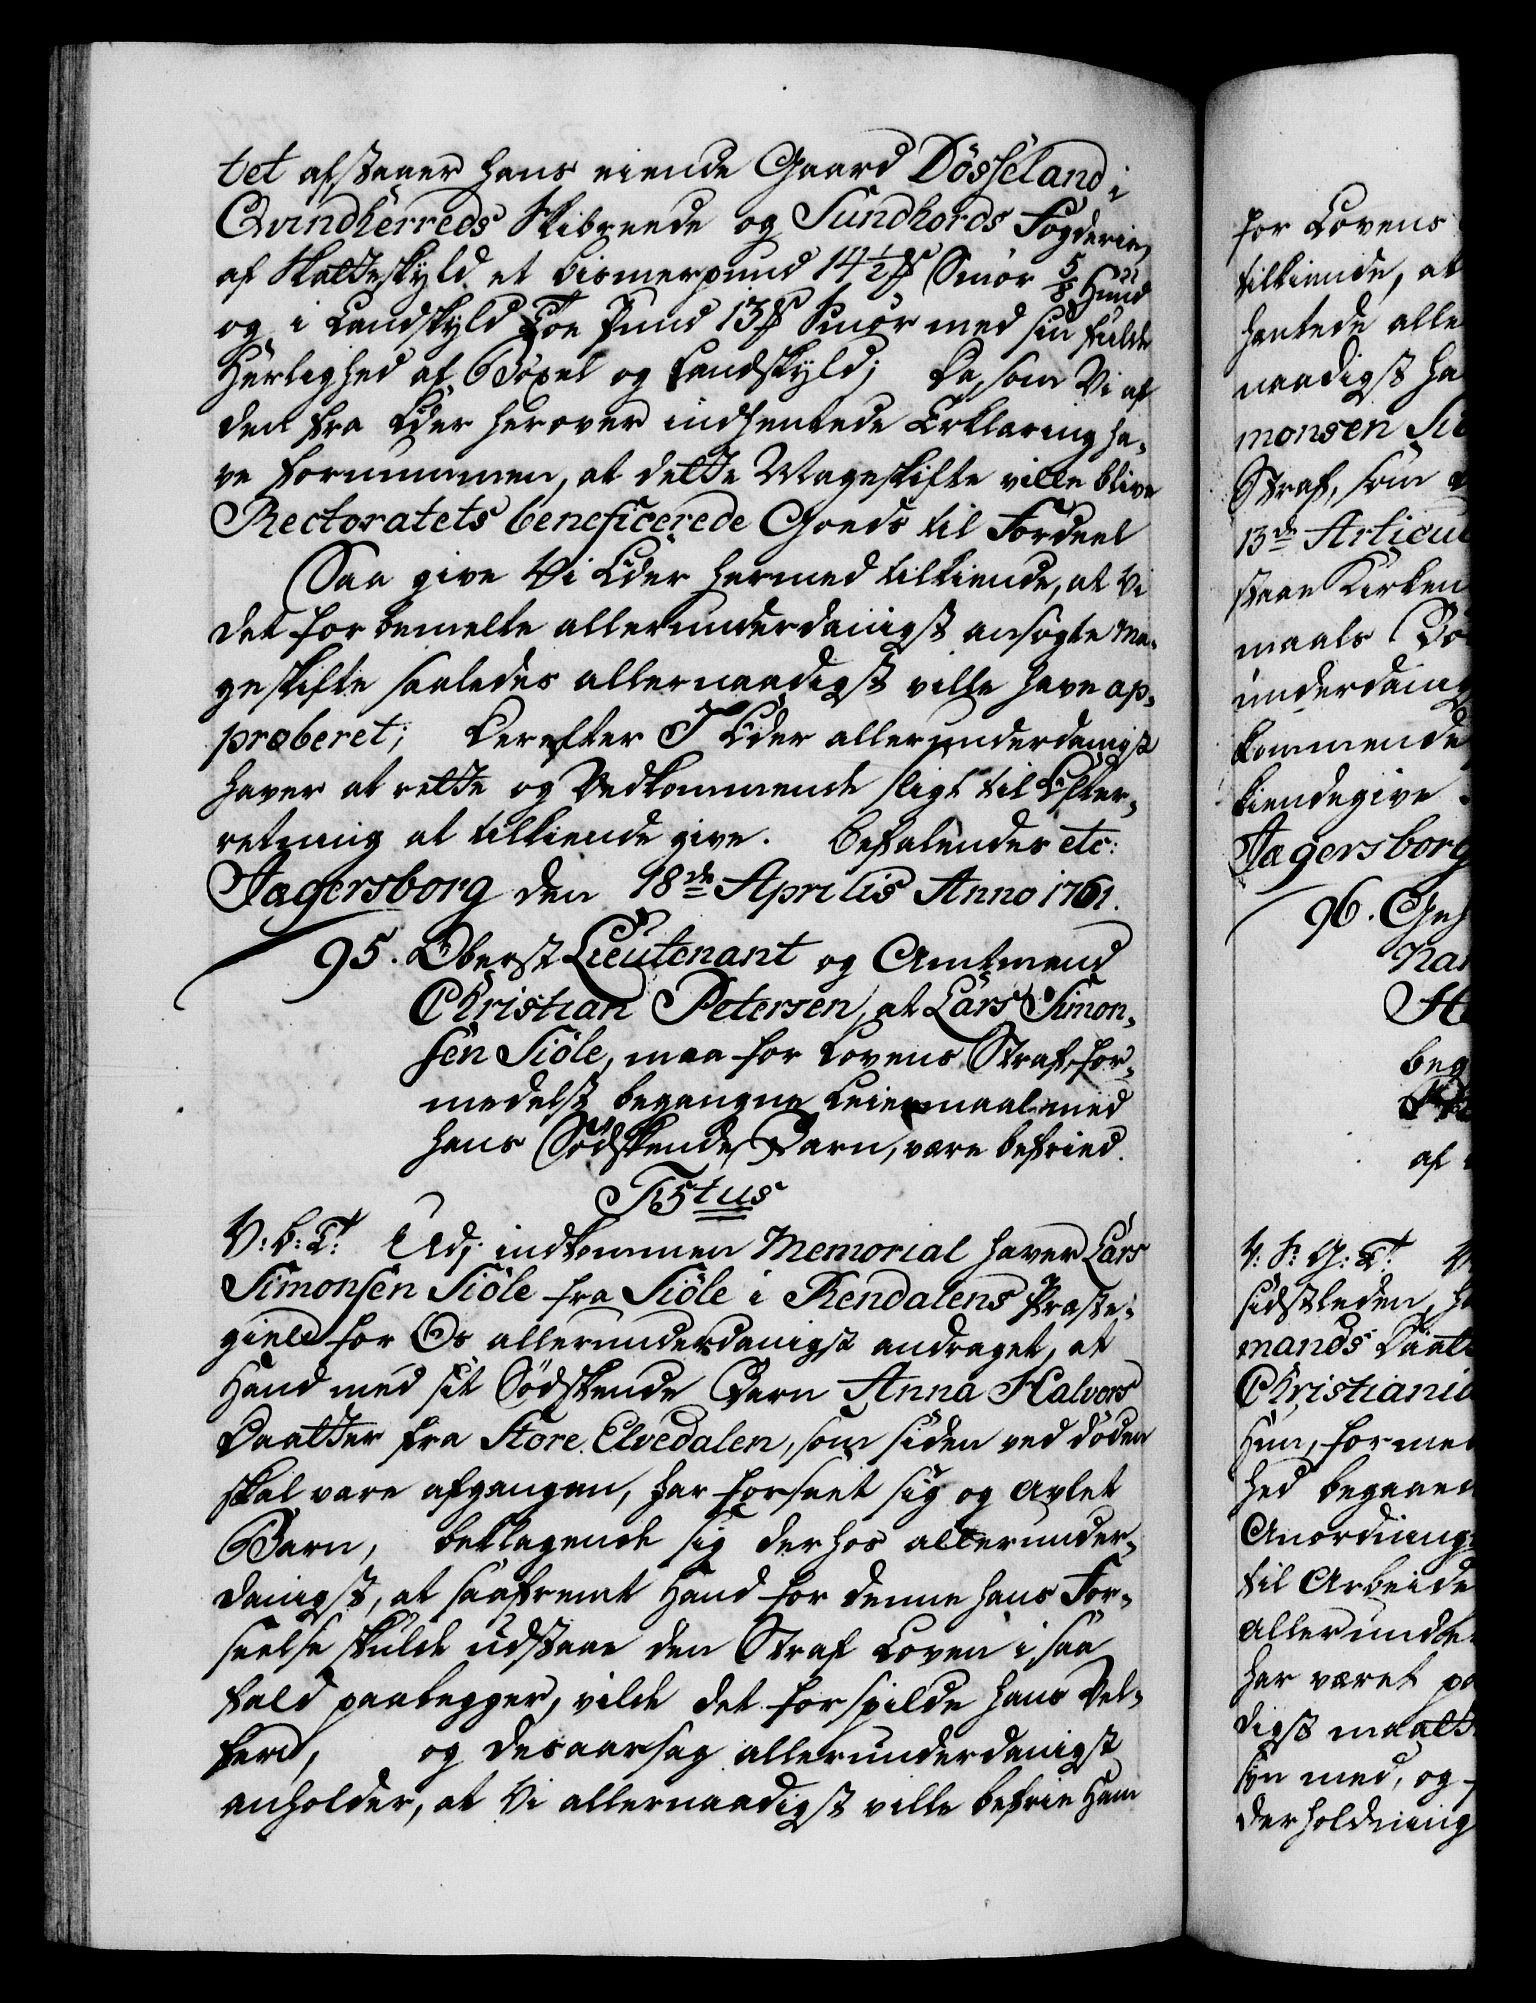 tet afstaaer hans eiende Gaard Dösseland i
Qvindherreds Skibreede og Sundhords Fogderie,
af Skatteskyld et Bismerpund 14½ ℔ Smör ⅝ Huud
og i Landskyld Toe Pund 13 ℔ Smör med sin fulde
Herlighed af Böxel og Landskyld; Da, som Vi af
den fra Eder herover indhentede Erklæring ha-
ve fornummen, at dette Mageskifte ville blive
Rectoratets beneficerede Goeds til Fordeel
Saa give Vi Eder hermed tilkiende, at Vi
det forbemelte allerunderdanigst ansögte Ma-
geskifte saaledes allernaadigst ville have ap-
proberet; Derefter I Eder allerunderdanigst
haver at rette og Vedkommende sligt til Efter-
retning at tilkiende give. Befalendes etc:
Jægersborg den 18de Aprilis Anno 1761.
95. Oberst Lieutenant og Amtmand
Christian Petersen, at Lars Simon-
sen Siöle, maa for Lovens Straf for-
medelst begangne Leiermaal med
hans Södskende Barn, være befried.
F5tus
V: B: T: Udj indkommen Memorial haver Lars
Simonsen Siöle fra Siöle i Rendalens Præste-
gield for Os allerunderdanigst andraget, at
Hand med sit Södskende Barn Anna Halvors
Daatter fra Store Elvedalen, som siden ved döden
skal være afgangen, har forseet sig og avlet
Barn, beklagende sig derhos allerunder-
danigst, at saafremt Hand for denne hans For-
seelse skulde udstaae den Straf Loven i saa
fald paalegger, vilde det forspilde hans Vel-
færd, og desaarsag allerunderdanigst
anholder, at Vi allernaadigst ville befrie Ham
for Lovens
tilkiende, at
hentede alle
naadigst ha
monsen Siö
Straf, som
13de Articul
staae Kirken
maals Bö
underdanig
kommende
kiendegive
Jægersborg
96.
beg
af
V:
sidstleden,
mands Daatt
Christiania
Hun, forme
hed begaae
Anordning
til Arbeide
Allerunde
har været pa
digst maatt
syn med, og
derholdning